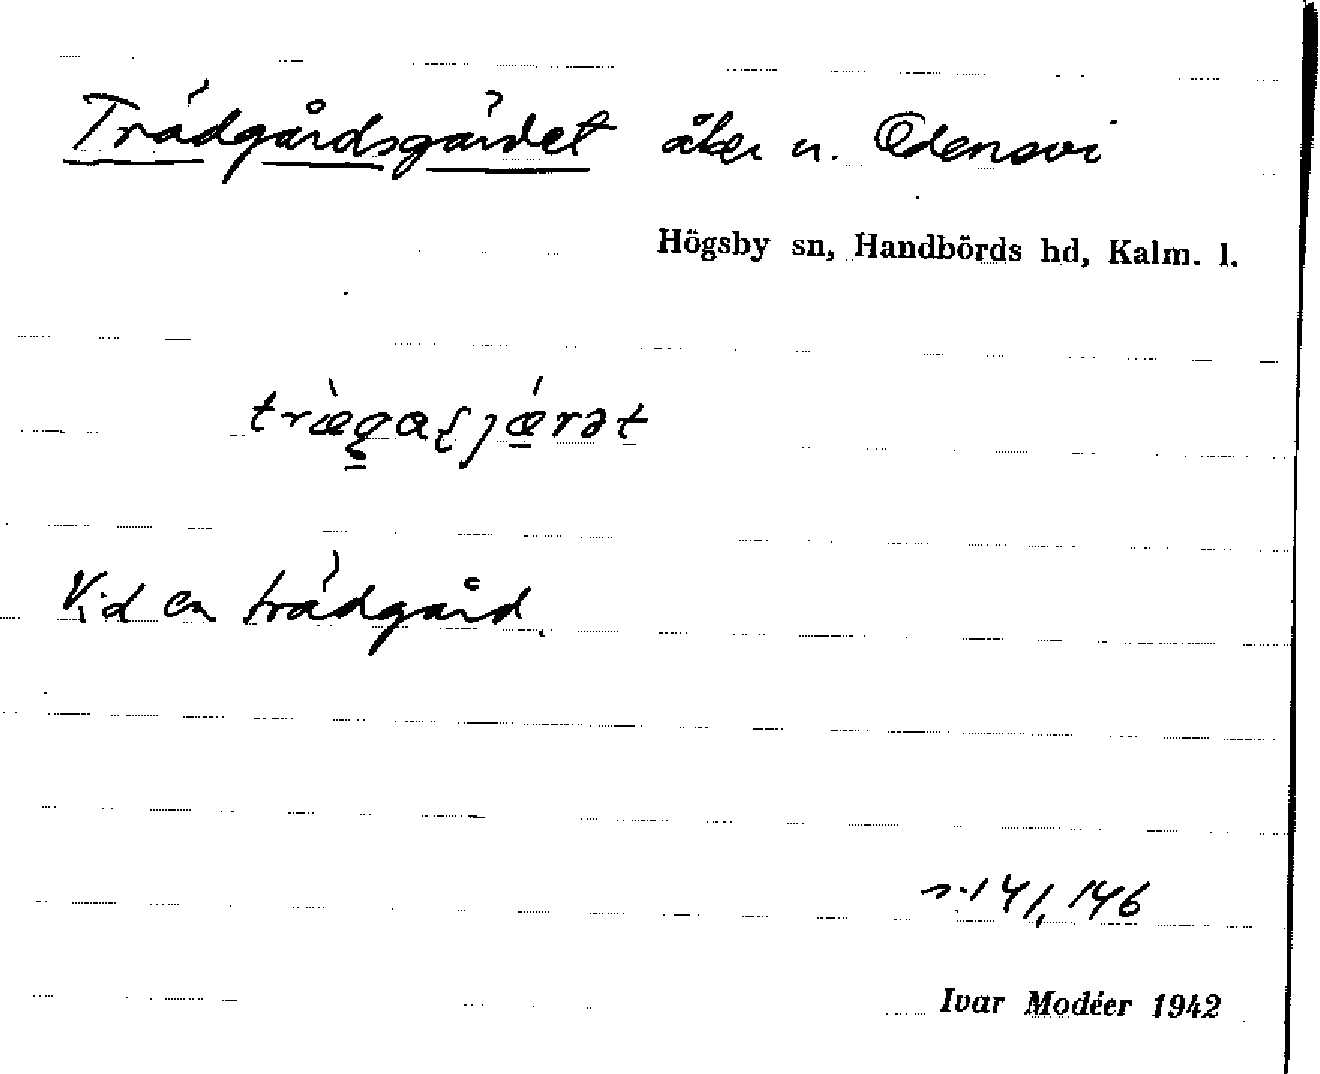 Trädgårdsgärdet åker u. Odensvi
Högsby sn, Handbörds hd, Kalm. l.
Vid en trädgård.
s. 141, 146
Ivar Modéer 1942